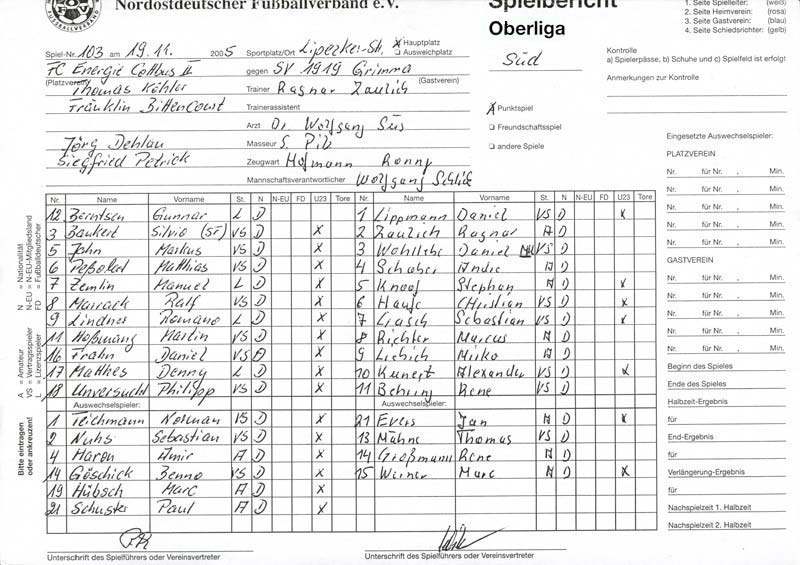 Nordostdeutscher Fußballverband e.V.
Spielbericht
Oberliga
Süd
1. Seite Spielleiter: (weiß)
2. Seite Heimverein: (rosa)
3. Seite Gastverein: (blau)
4. Seite Schiedsrichter: (gelb)
Spiel-Nr. 103 am 19.11. 2005 Sportplatz/Ort Lipezker-Str. x Hauptplatz
Ausweichplatz
FC Energie Cottbus II gegen SV 1919 Grimma
(Platzverein) (Gastverein)
Thomas Köhler Trainer Ragnar Zaulich
Franklin Bittencourt Trainerassistent
Arzt Dr. Wolfgang Süs
Jörg Dehlau Masseur S. Pilz
Siegfried Petrick Zeugwart Hofmann Ronny
Mannschaftsverantwortlicher Wolfgang Schlie
x Punktspiel
Freundschaftsspiel
andere Spiele
Kontrolle
a) Spielerpässe, b) Schuhe und c) Spielfeld ist erfolgt
Anmerkungen zur Kontrolle
Nr. Name Vorname St. N N-EU FD U23 Tore Nr. Name Vorname St. N N-EU FD U23 Tore
12 Berntsen Gunnar L D 1 Lippmann Daniel VS D x
3 Bankert Silvio (SF) VS D x 2 Zaulich Ragnar A D
5 Jahn Markus VS D x 3 Daniel VS D
6 Matthias VS D x 4 Schaber Andre A D
7 Zemlin Manuel L D x 5 Knoof Stephan A D x
8 Marrack Ralf VS D x 6 Haufe Christian VS D x
9 Lindner Romano L D 7 Gasch Sebastian VS D x
11 Hoßmang Martin VS D x 8 Richter Marcus A D
16 Frahn Daniel VS D x 9 Liebich Mirko A D
17 Matthes Denny L D x 10 Kunert Alexander VS D x
18 Unversucht Philipp VS D x 11 Behring Rene VS D
Auswechselspieler: Auswechselspieler:
1 Teichmann Norman VS D x 21 Evers Jan A D x
2 Nuhs Sebastian VS D x 13 Mähne Thomas VS D
4 Maron Amir A D x 14 Großmann Rene A D
14 Göschick Benno VS D x 15 Werner Marc A D x
19 Hübsch Marc A D x
21 Schuster Paul A D x
Unterschrift des Spielführers oder Vereinsvertreter Unterschrift des Spielführers oder Vereinsvertreter
N = Nationalität
N-EU = N-EU-Mitgliedsland
FD = Fußballdeutscher
A = Amateur
VS = Vertragsspieler
L = Lizenzspieler
Bitte eintragen
oder ankreuzen!
Eingesetzte Auswechselspieler:
PLATZVEREIN
Nr. für Nr. , Min.
Nr. für Nr. , Min.
Nr. für Nr. , Min.
Nr. für Nr. , Min.
GASTVEREIN
Nr. für Nr. , Min.
Nr. für Nr. , Min.
Nr. für Nr. , Min.
Nr. für Nr. , Min.
Nr. für Nr. , Min.
Beginn des Spieles
Ende des Spieles
Halbzeit-Ergebnis
für
End-Ergebnis
für
Verlängerung-Ergebnis
für
Nachspielzeit 1. Halbzeit
Nachspielzeit 2. Halbzeit